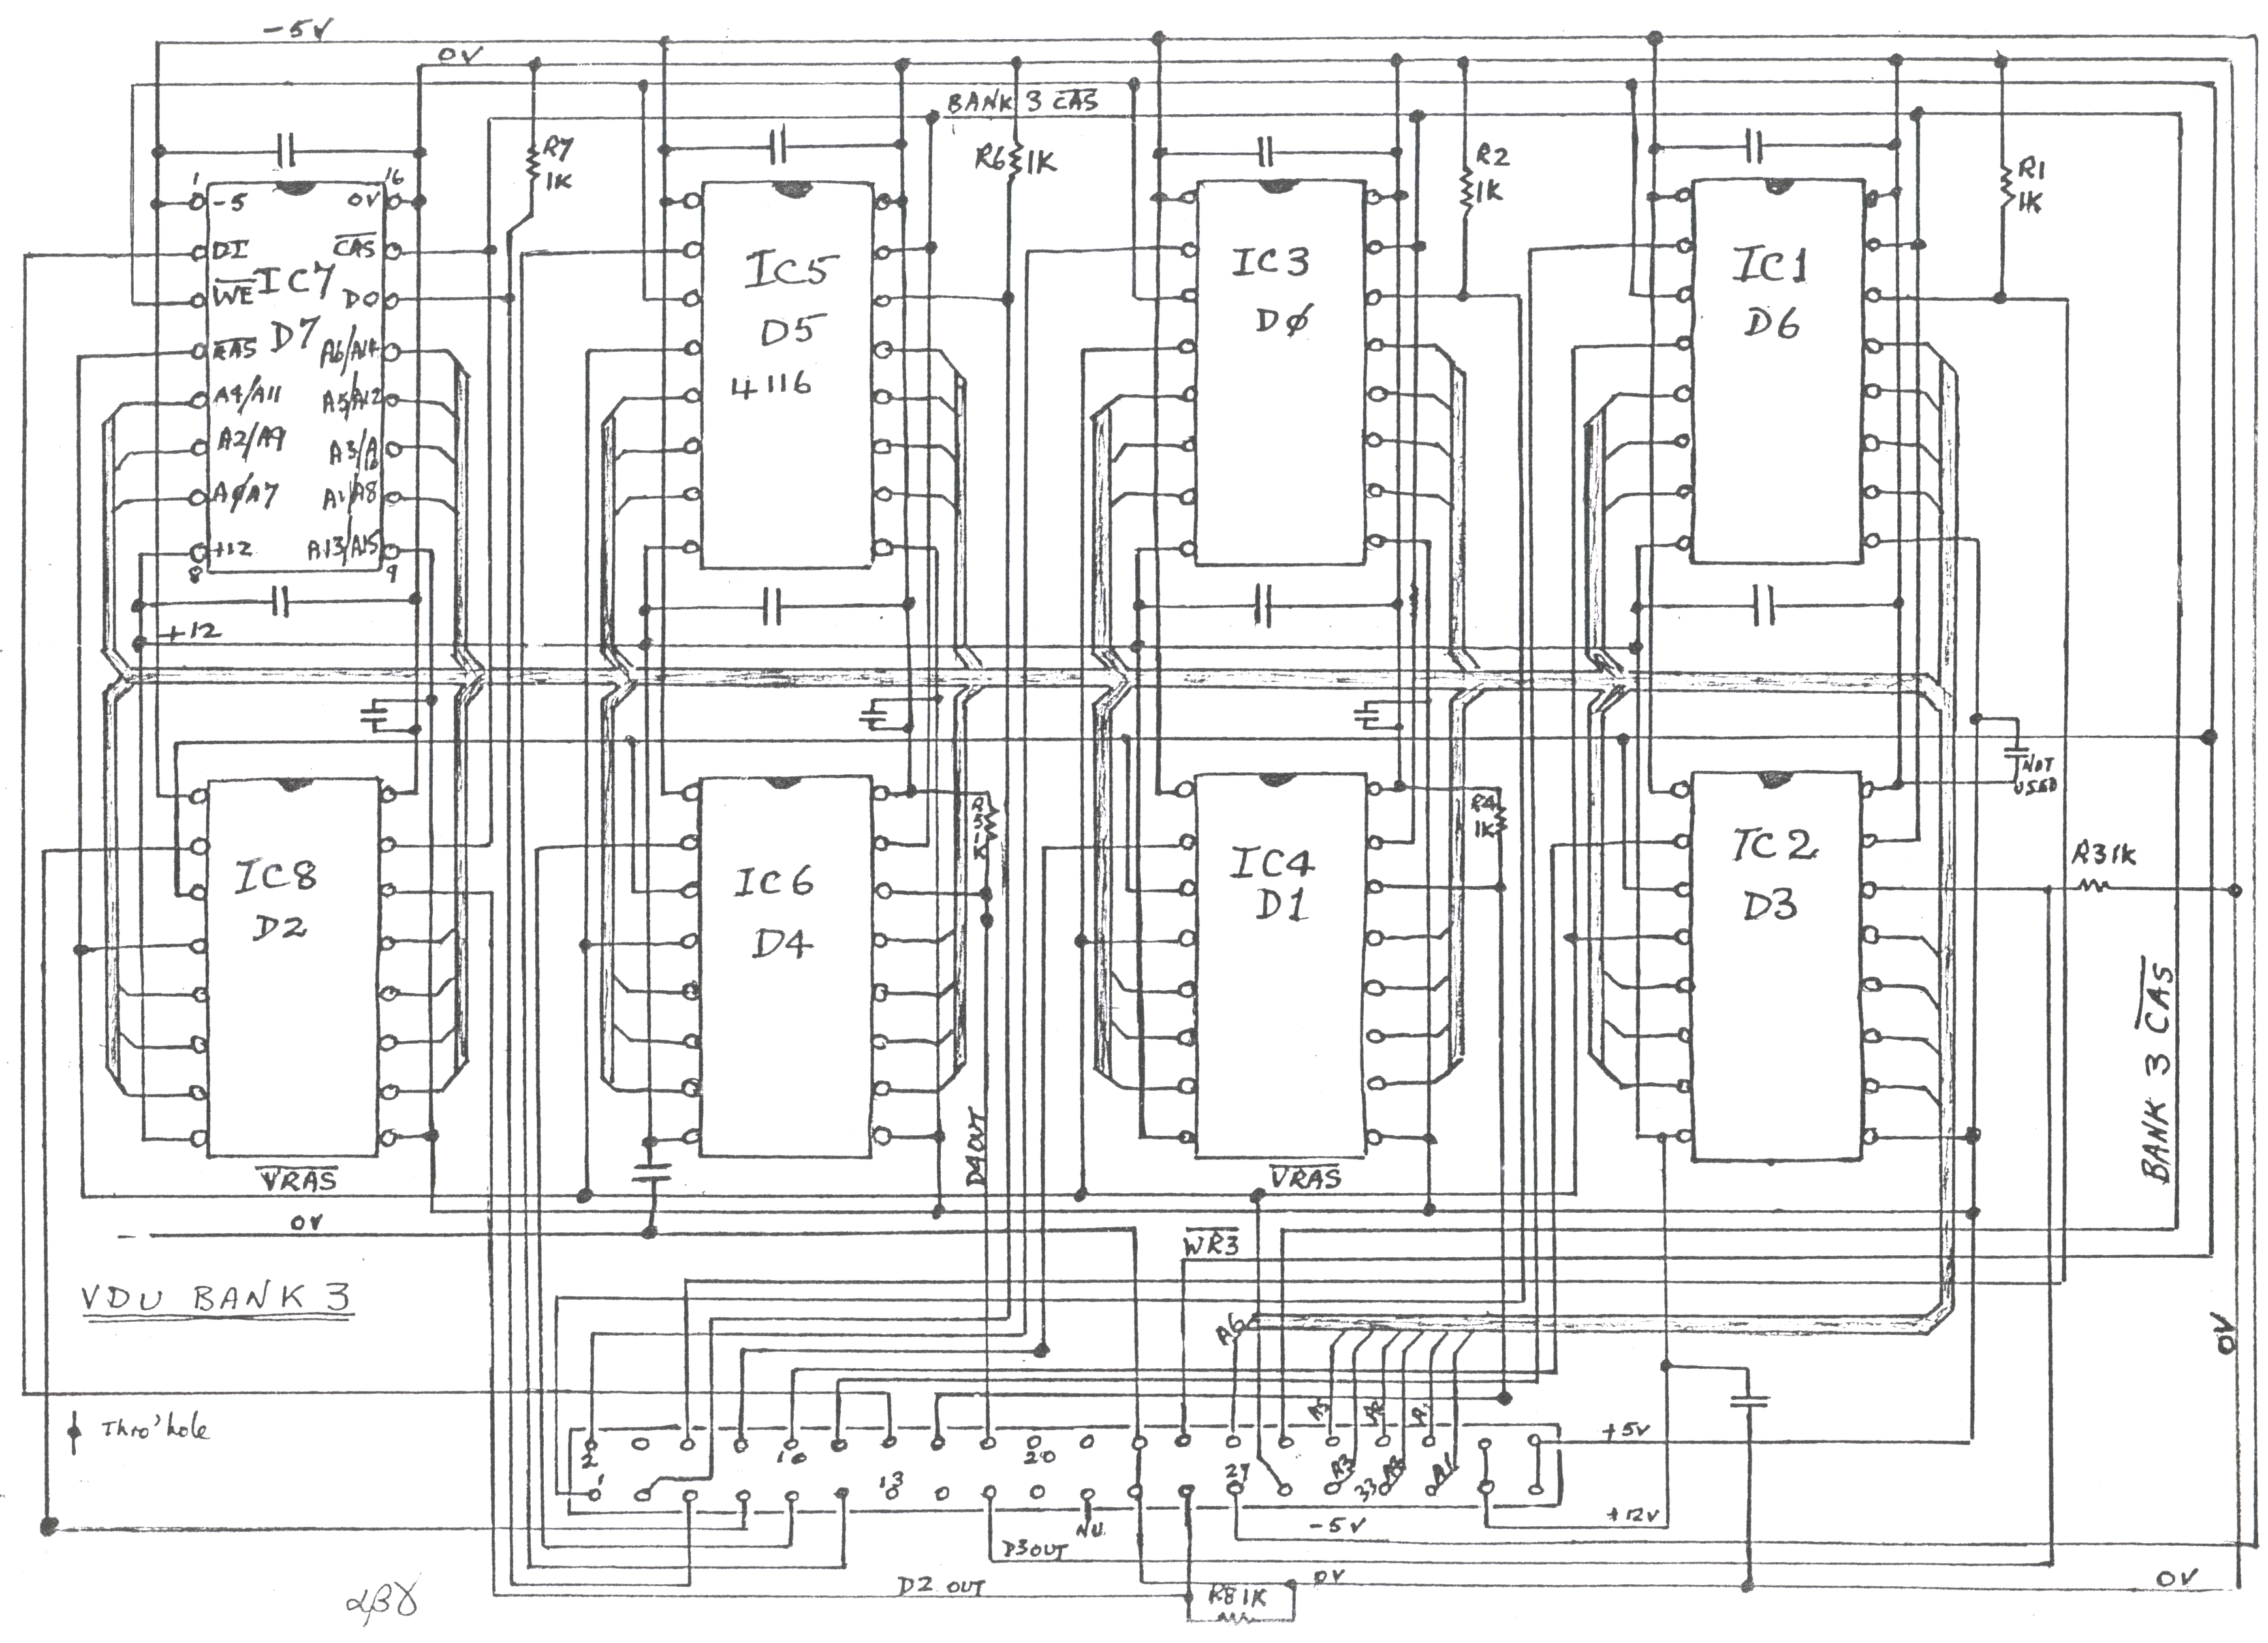 -5V
0V
BANK 3 CAS
R7
1K
R6 1K
R2
1K
R1
1K
1
16
-5
0V
DI
CAS
WE
IC7
DO
D7
RAS
A6/A14
A4/A11
A5/A12
A2/A9
A3/A10
AØ/A7
A1/A8
+12
A13/A15
8
9
IC5
D5
4116
IC3
DØ
IC1
D6
+12
NOT
USED
IC8
D2
IC6
D4
R5
1K
IC4
D1
R4
1K
IC2
D3
R3 1K
BANK 3 CAS
D4OUT
VRAS
VRAS
0V
WR3
VDU BANK 3
A6
0V
Thro'hole
2
10
20
+5V
1
13
27
A3
33
A1
NU
-5V
+12V
D3OUT
D2 OUT
R8 1K
0V
0V